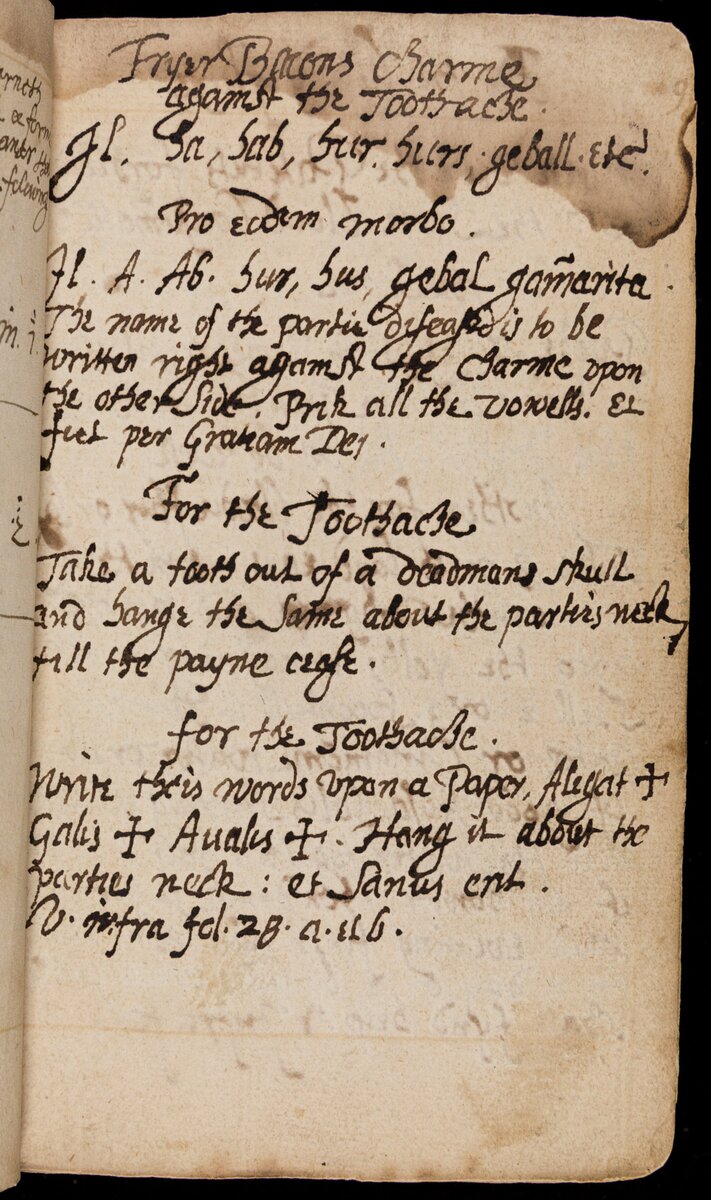 Fryer Bacons Charme
against the Toothache.
Jl. ha, hab, hur, hurs, geball. etc.
Pro eodem morbo.
Jl. A. Ab. hur, hus, gebal gam̃arita
The name of the partie diseased is to be
written right against the Charme upon
the other side. Prik all the vowells. Et
fiet per Gratiam Dei.
For the Toothache
Take a tooth out of a deadmans skull
and hange the same about the parties neck,
till the payne cease.
for the Toothache.
Write theis words upon a Paper, Alegat ✠
Galis ✠ Aualis ✠. Hang it about the
parties neck: et Sanus erit.
V. infra fol. 28. a. et b.